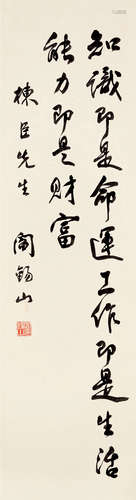 知識即是命運工作即是生活
能力即是財富
棟臣先生
閻錫山